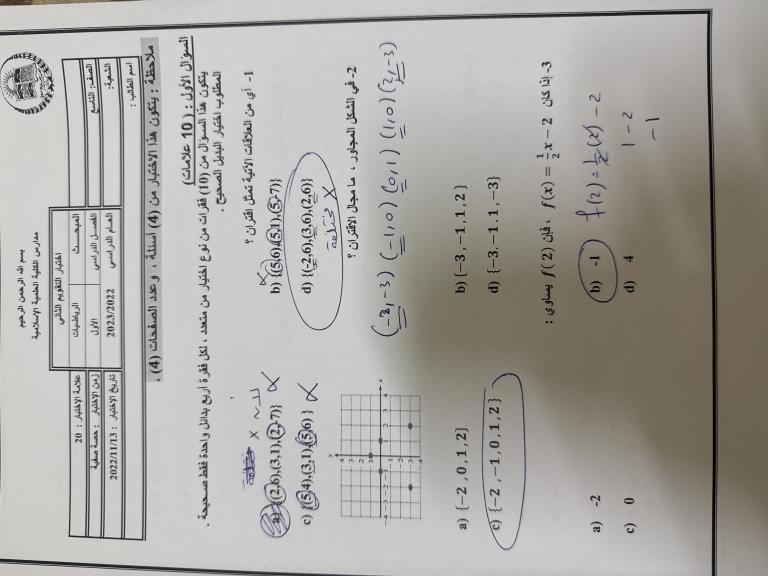 بسم الله الرحمن الرحيم
مدارس الكلية العلمية الاسلامية
اختبار التقويم الثاني
اسم الطالب :
الصف: التاسع
الشعبة:
المبحث
الرياضيات
علامة الاختبار : 20
الفصل الدراسي
الأول
زمن الاختبار : حصة صفية
العام الدراسي
2023/2022
تاريخ الاختبار : 2022/11/13
ملاحظة : يتكون هذا الاختبار من (4) اسئلة ، وعدد الصفحات (4) .
السؤال الأول : ( 10 علامات)
يتكون هذا السؤال من (10) فقرات من نوع اختيار من متعدد ، لكل فقرة أربع بدائل واحدة فقط صحيحة .
المطلوب اختيار البديل الصحيح .
1- أي من العلاقات الآتية تمثل اقتران ؟
a) {(2,6),(3,1),(2,-7)}
b) {(5,6),(5,1),(5,-7)}
c) {(5,4),(3,1),(5,6)}
d) {(-2,6),(3,6),(2,6)}
2- في الشكل المجاور ، ما مجال الاقتران ؟
(-2,-3) (-1,0) (0,1) (1,0) (2,-3)
a) {-2 , 0, 1, 2}
b) {-3 , -1, 1, 2 }
c) {-2 , -1, 0, 1, 2 }
d) {-3. -1. 1, -3}
3- إذا كان f(x) = 1/2 x - 2 ، فإن f(2) يساوي :
f(2) = 1/2 (2) - 2
1 - 2
-1
a) -2
b) -1
c) 0
d) 4